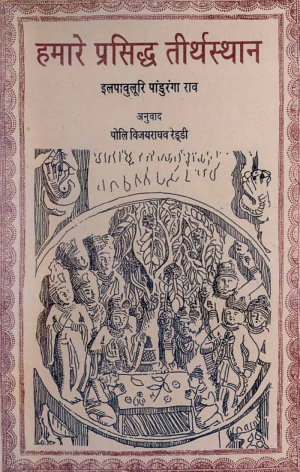 हमारे प्रसिद्ध तीर्थस्थान
इलपावुलूरि पांडुरंगा राव
अनुवाद
पोलि विजयराघव रेड्डी